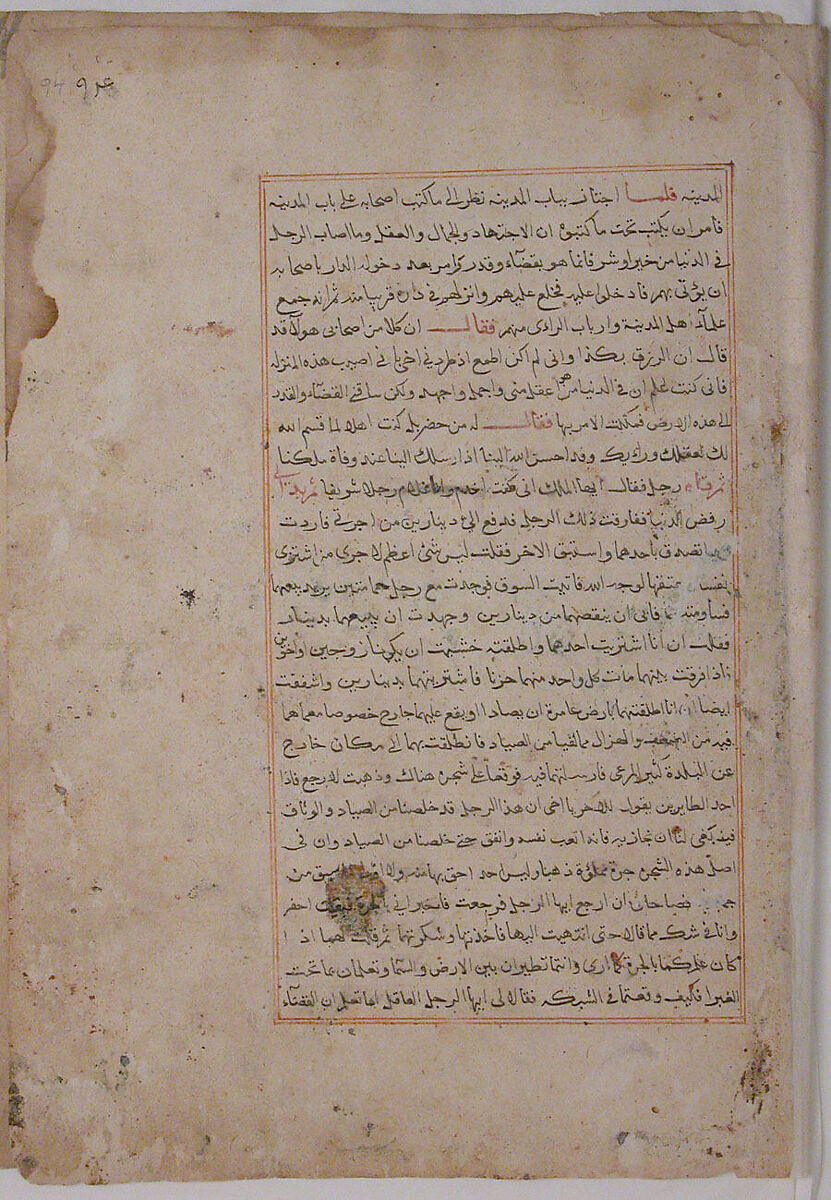 94 ٩٤
المدينه فلما اجتاز بباب المدينه نظر الى ما كتب اصحابه على باب المدينه
فامر ان يكتب تحت ما كتبوه ان الاجتهاد والجمال والعقل وما اصاب الرجل
في الدنيا من خير او شر فانما هو بقضآء وقدر ثم امر بعد دخوله الدار باصحابه
ان يؤتى بهم فادخلوا عليه فخلع عليهم وانزلهم في دار قريبا منه ثم انه جمع
علمآء اهل المدينة وارباب الراى منهم فقال ان كلا من اصحابي هولآ قد
قال ان الرزق بكذا وانى لم اكن اطمع اذ طردني اخي باني اصيب هذه المنزله
فانى كنت اعلم ان في الدنيا من هو اعقل منى واجمل واجهد ولكن ساقني القضآء والقدر
الى هذه الارض فملكت الامر بها فقال له من حضر بلى كنت اهلا لما قسم الله
لك لعقلك ورايك وقد احسن الله الينا اذ ارسلك الينا عند وفاة ملكنا
ثم قام رجل فقال ايها الملك انى كنت اخدم وانا غلام رجلا شريفا ثم بدا لي
رفض الدنيا ففارقت ذلك الرجل فدفع الي دينارين من اجرتي فاردت
اتصدق باحدهما واستبق الاخر فقلت ليس شئ اعظم لاجرى من اشترى
نفسا يعتقها لوجه الله فاتيت السوق فوجدت مع رجل حمامتين يريد بيعهما
فساومته فابى ان ينقصهما من دينارين وجهدت ان يبيعهما بدينار
فقلت ان انا اشتريت احدهما واطلقته خشيت ان يكونا زوجين واخوين
فاذا فرقت بينهما مات كل واحد منهما حزنا فاشتريتهما بدينارين واشفقت
ايضا ان انا اطلقتهما بارض عامرة ان يصادا او يقع عليهما جارح خصوصا مع ما هما
فيه من الضعف والهزال مما لقيا من الصياد فانطلقت بهما الى مكان خارج
عن البلدة كثير المرعى فارسلتهما فيه فوقعا على شجره هناك وذهبت لارجع فاذا
احد الطايرين يقول للاخر يا اخى ان هذا الرجل قد خلصنا من الصياد والوثاق
فيه يكفي لنا ان نجازيه فانه اتعب نفسه وانفق حتى خلصنا من الصياد وان فى
اصل هذه الشجره جرة مملوءة ذهبا وليس احد احق بها منه ولا من
فصاحا ان ارجع ايها الرجل فرجعت فاخبرانى بالجرة فبقيت احفر
وانا في شك مما قالا حتى انتهيت اليها فاخذتها وشكرتهما ثم قلت لهما اذا
كان علمكما بالجرة كما ارى وانتما تطيران بين الارض والسمآ وتعلمان بما تحت
الغبرا فكيف وقعتما في الشبكه فقالا لى ايها الرجل العاقل اما تعلم ان القضآء